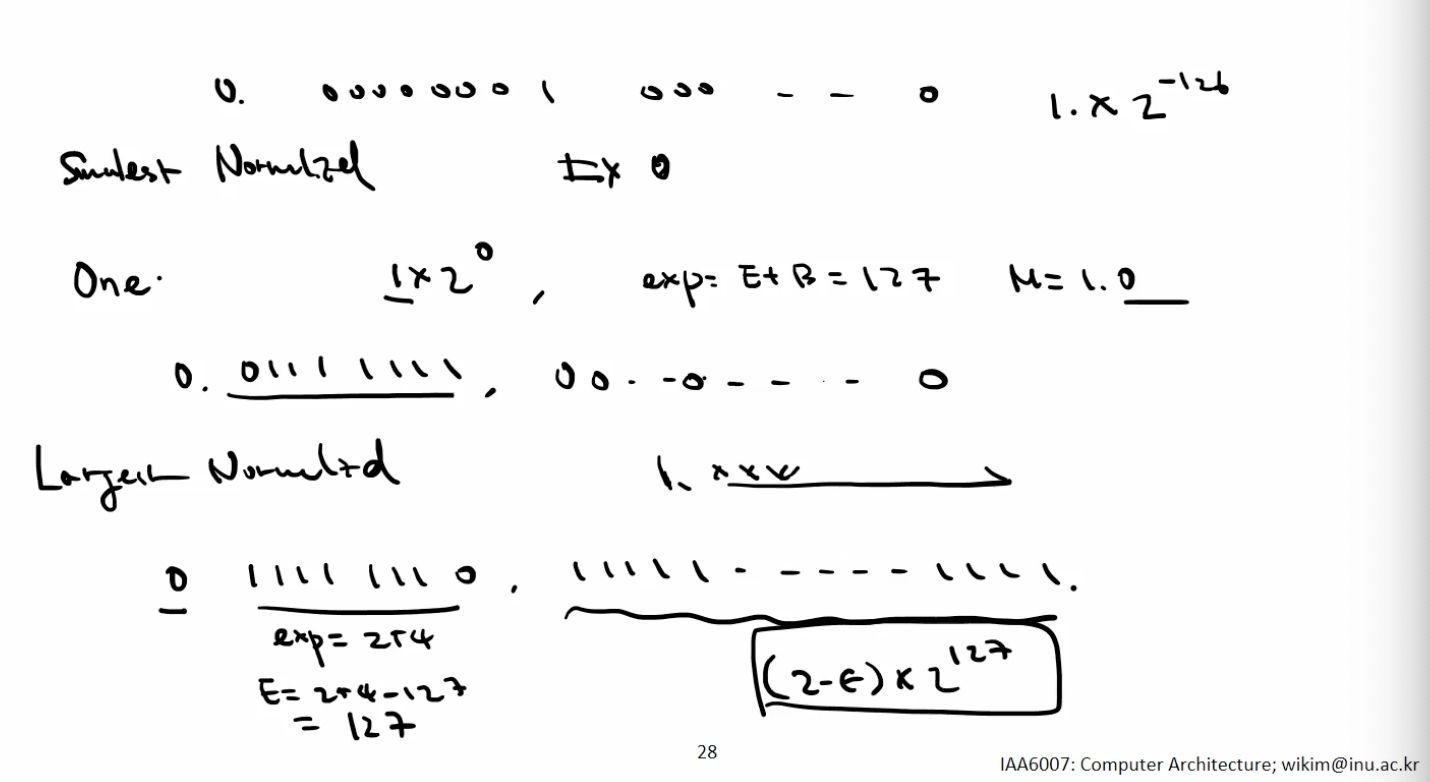 0. 00000001 000 - - 0 1. × 2^-126
Smalest Normalized Ex 0
One. 1×2^0, exp= E+B = 127 M= 1.0
0. 0111 1111, 00 . -0 - - . - 0
Largest Normalized 1. xxx
0 1111 1110. 11111 - - - - - 1111.
exp= 254
E= 254-127
= 127
(2-ϵ) × 2^127
28
IAA6007: Computer Architecture; wikim@inu.ac.kr